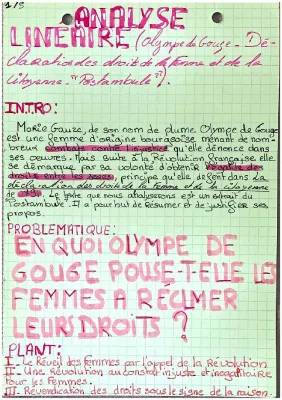 1/3
ANALYSE
LINEAIRE (Olympe de Gouge - Dé-
claration des droits de la femme et de la
citoyenne. "Postambule").
INTRO:
Marie Gauze, de son nom de plume Olympe de Gouge
est une femme d'origine bourgeoise menant de nom-
breux combats contre l'injustice qu'elle dénonce dans
ses oeuvres. Mais suite à la Révolution française elle
se démarque par sa volonté d'obtenir l'égalité des
droits entre les sexes, principe qu'elle défend dans La
déclaration des droits de la femme et de la citoyenne
de 1791. Le texte que nous analyserons est un extrait du
Postambule. Il a pour but de résumer et de justifier ses
propos.
PROBLEMATIQUE:
EN QUOI OLYMPE DE
GOUGE POUSE-T-ELLE LES
FEMMES A RECLMER
LEURS DROITS ?
PLANT:
I- Le Réveil des femmes par l'appel de la Révolution
II- Une Révolution au constat injuste et inégalitaire
pour les femmes.
III- Revendication des droits sous le signe de la raison.